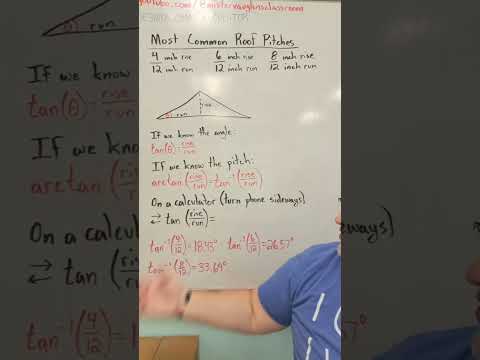 Most Common Roof Pitches
4 inch rise 6 inch rise 8 inch rise
12 inch run 12 inch run 12 inch run
rise
θ run
If we know the angle:
tan(θ)=rise/run
If we know the pitch:
arctan(rise/run)=tan⁻¹(rise/run)
On a calculator (turn phone sideways)
⇄ tan(rise/run)=
tan⁻¹(4/12)=18.43° tan⁻¹(6/12)=26.57°
tan⁻¹(8/12)=33.69°